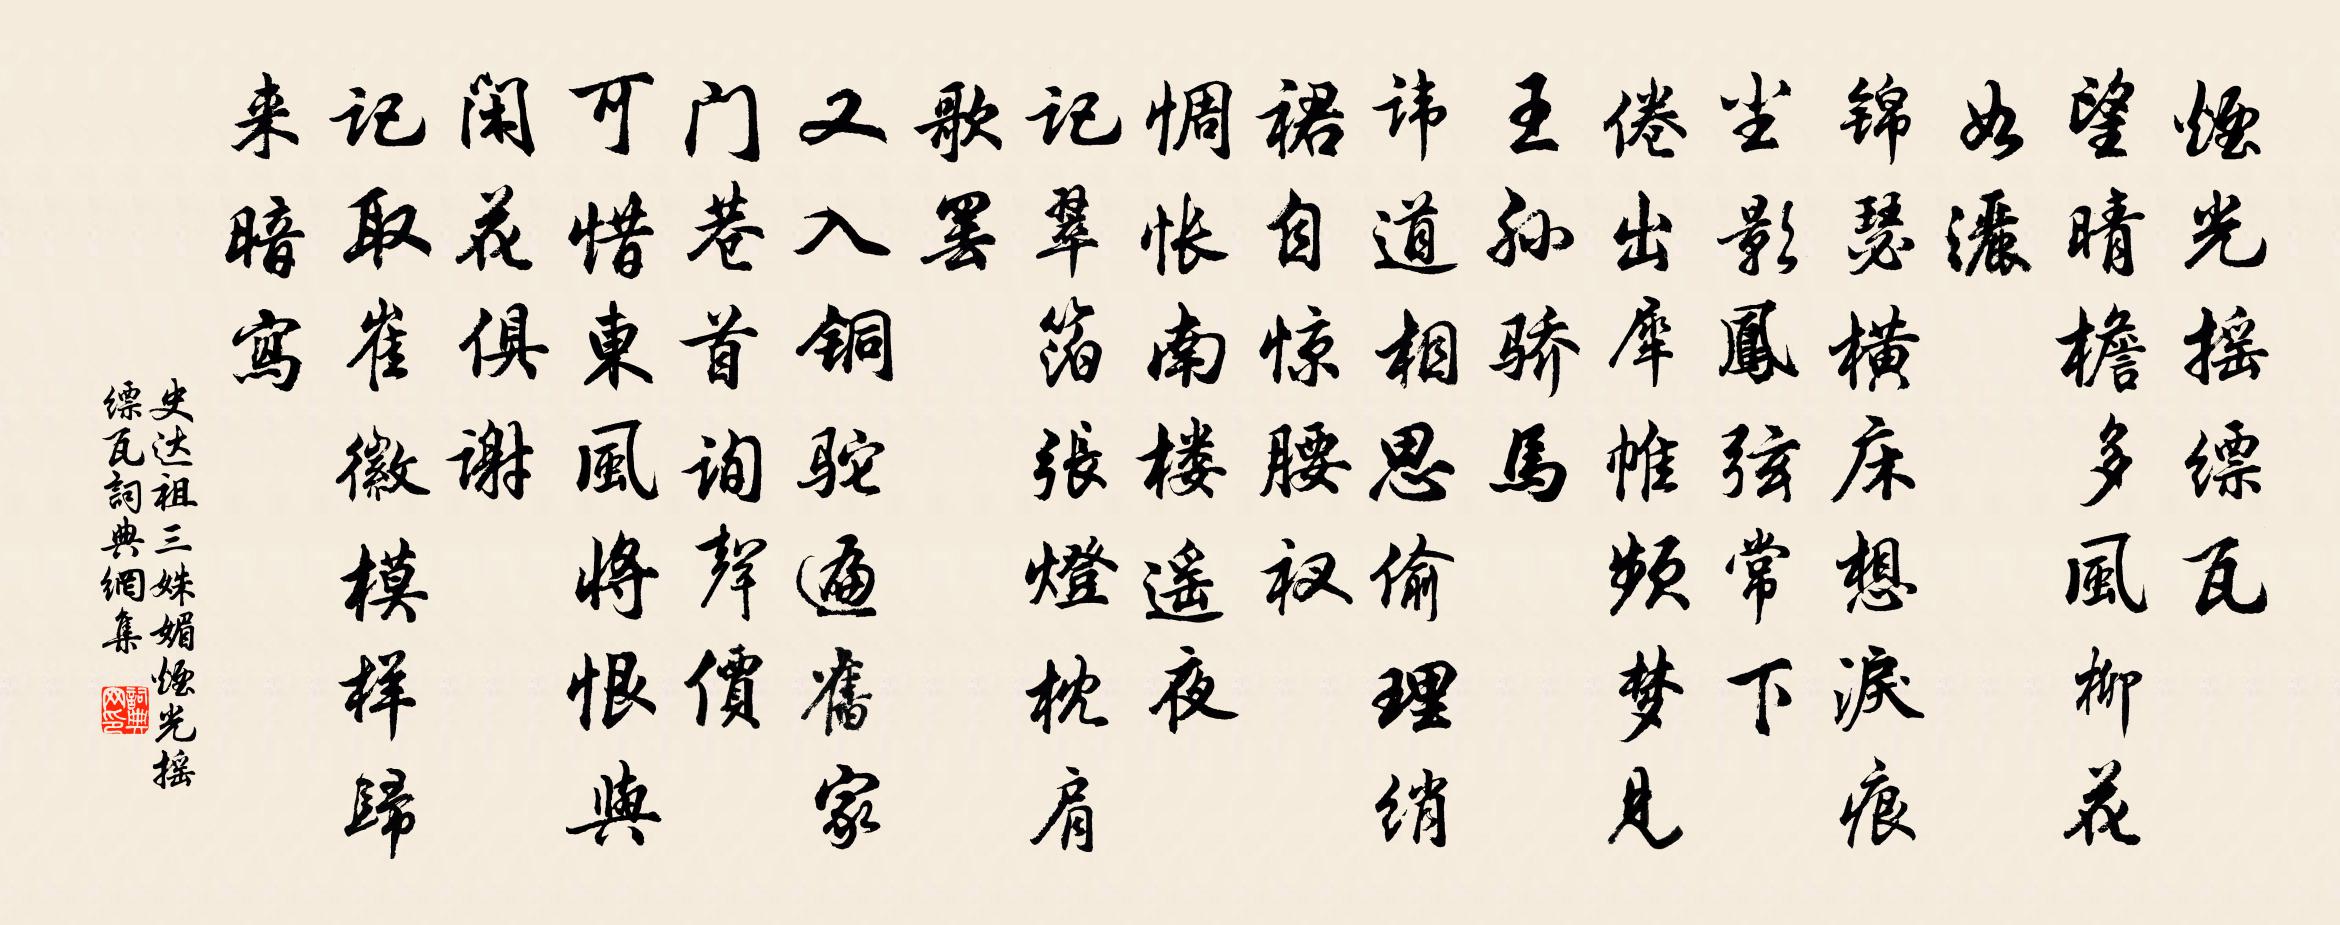 煙光摇缥瓦
望晴檐多風柳花
如灑
锦瑟横床想淚痕
尘影鳳弦常下
倦出犀帷频梦见
王孙骄馬
讳道相思偷理绡
裙自惊腰衩
惆怅南楼遥夜
记翠箔張燈枕肩
歌罢
又入铜驼遍舊家
门巷首询聲價
可惜東風将恨與
闲花俱谢
记取崔徽模样歸
来暗寫
史达祖三姝媚煙光摇
缥瓦詞典網集
詞典网印